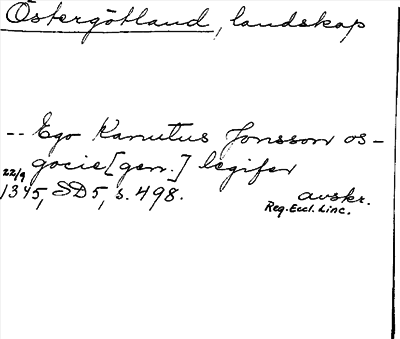 Östergötland, landskap
-- Ego Kanutus Jonsson os-
gocie [gen.] legifer
22/9
1345, SD5, s. 498. avskr.
Reg. Eccl. Linc.